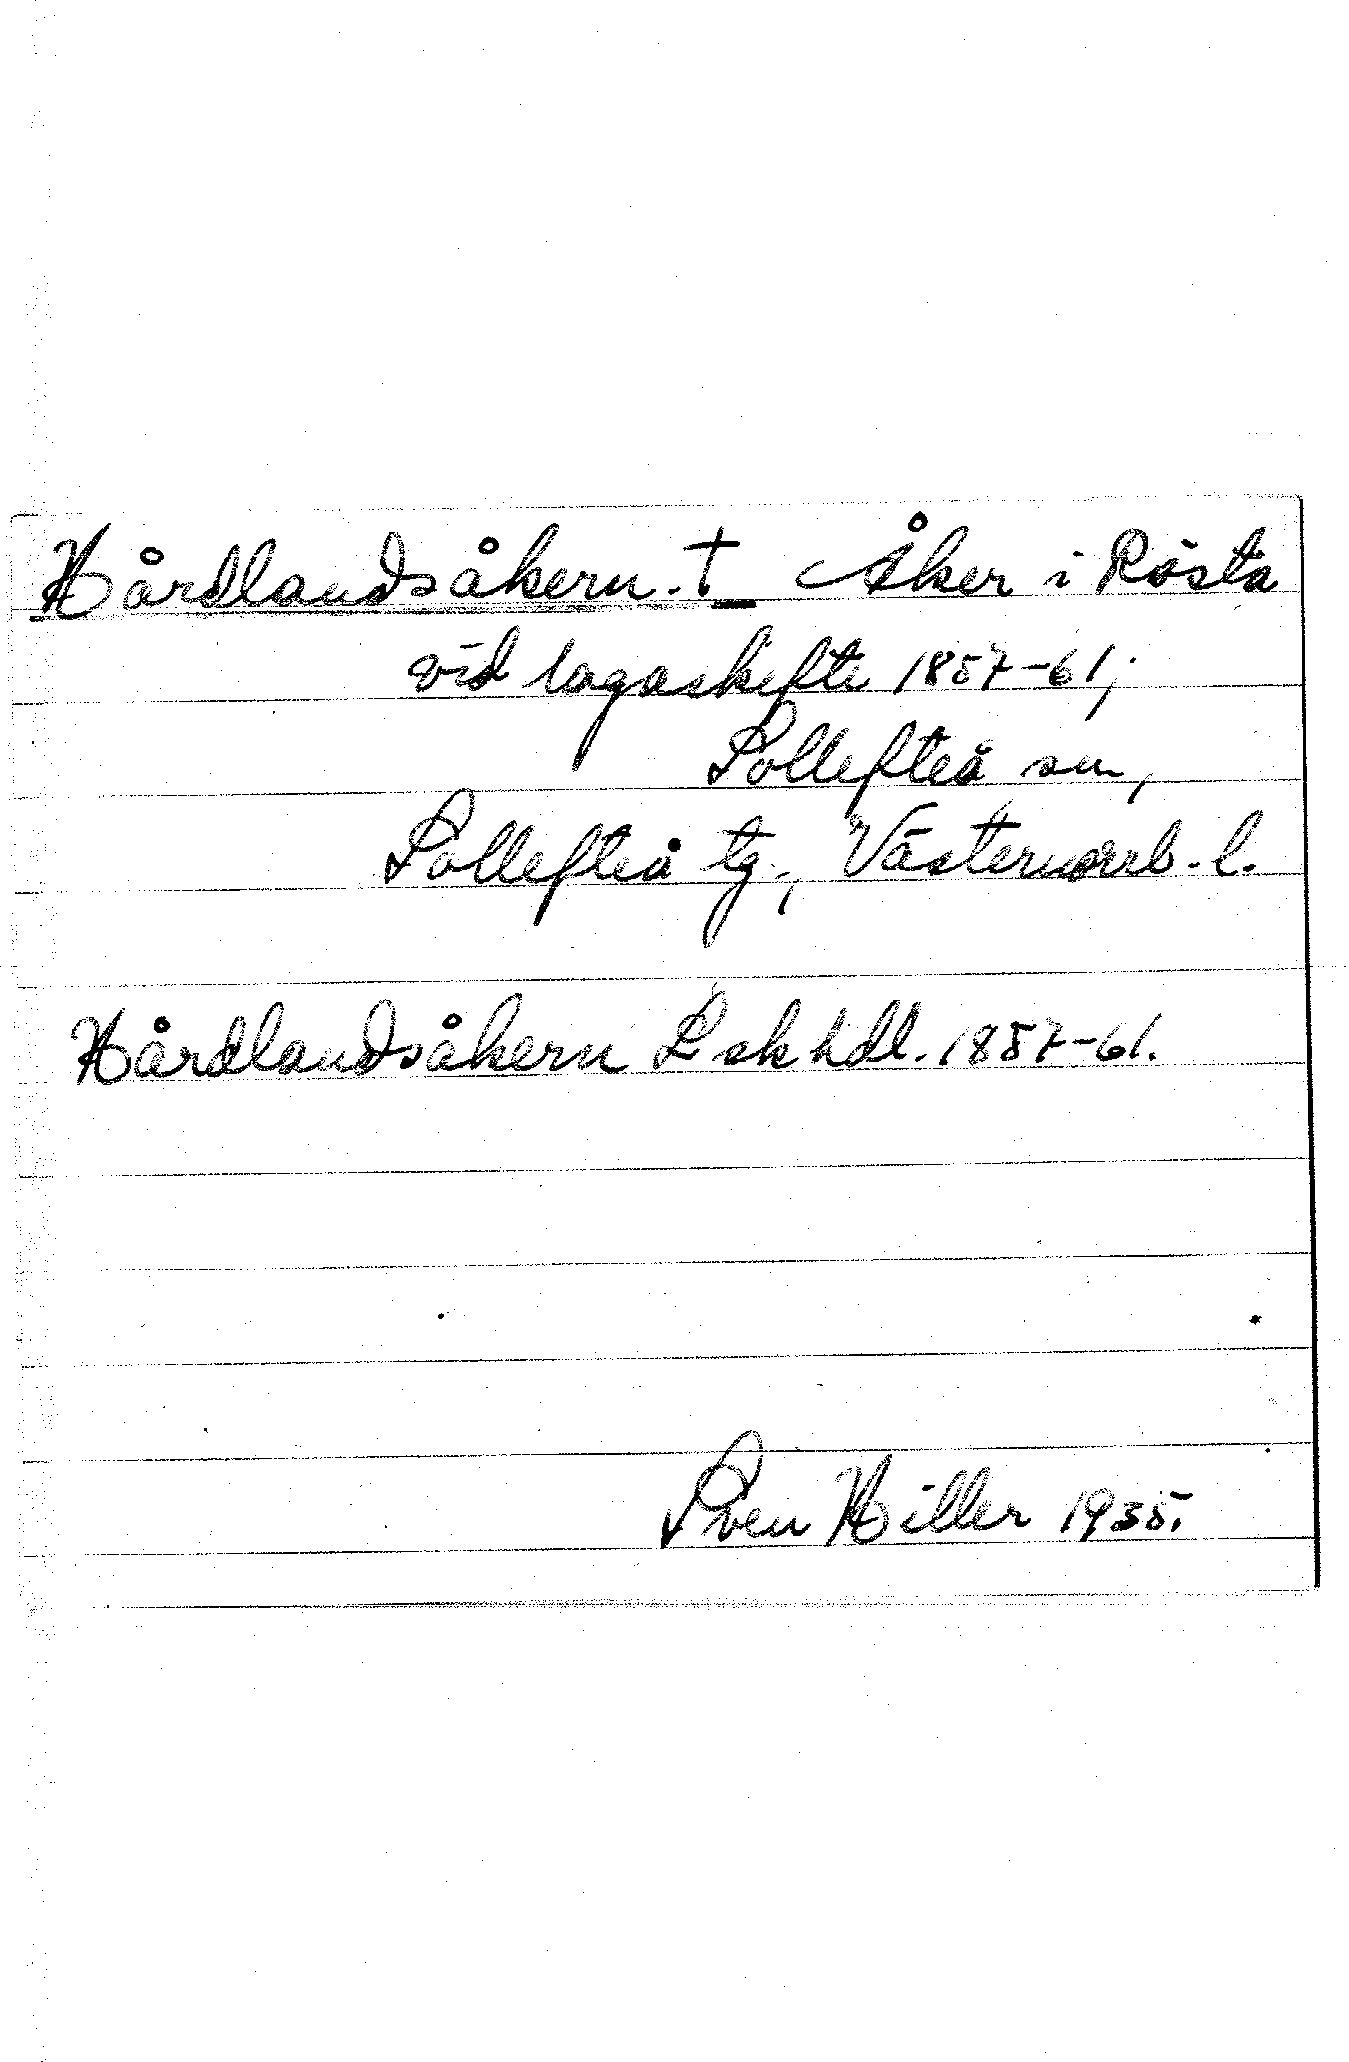 Hårdlandsåkern. † Åker i Rösta
vid lagaskifte 1857-61;
Sollefteå sn,
Sollefteå tg., Västernorrl. l.
Hårdlandsåkern Lskhdl. 1857-61.
Sven Hiller 1935.